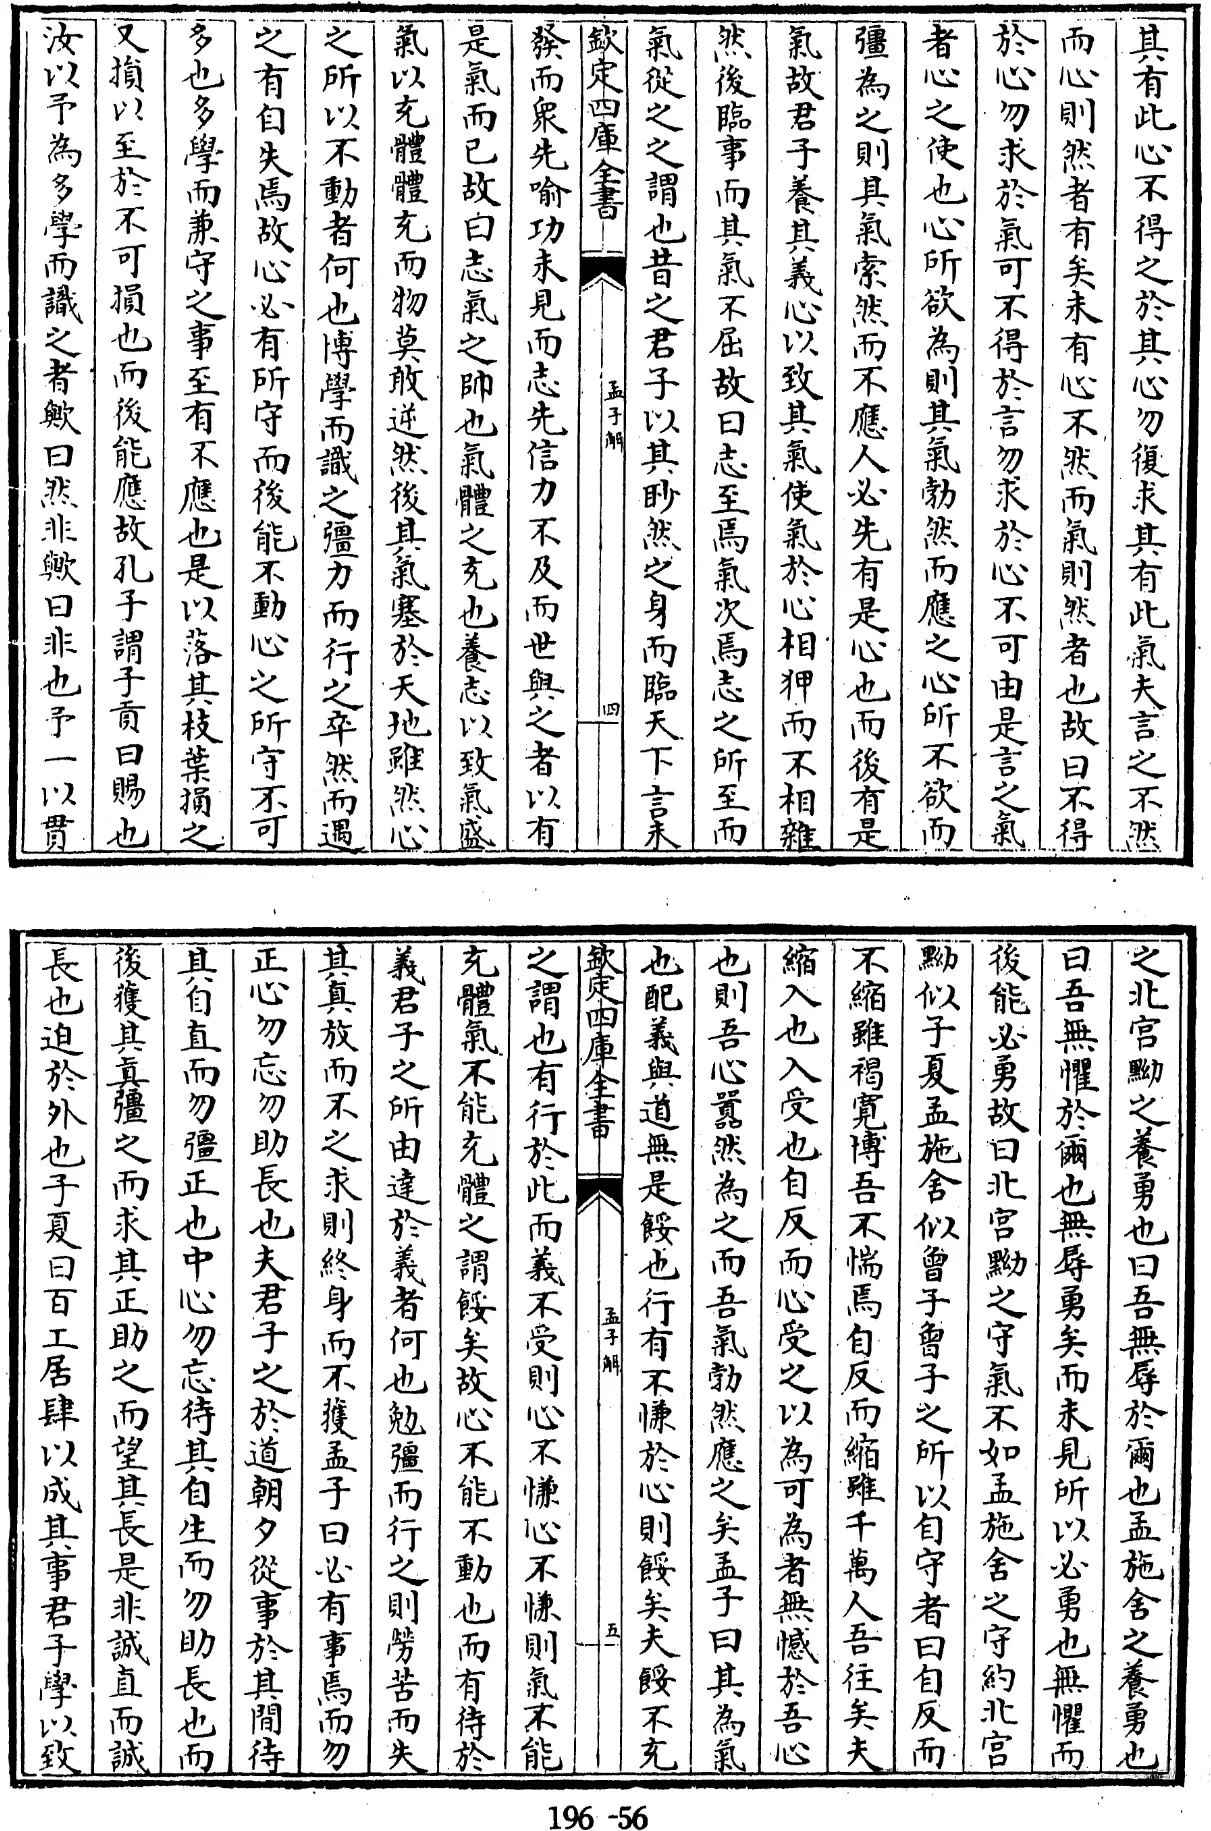 其有此心不得之於其心勿復求其有此氣夫言之不然
而心則然者有矣未有心不然而氣則然者也故曰不得
於心勿求於氣可不得於言勿求於心不可由是言之氣
者心之使也心所欲為則其氣勃然而應之心所不欲而
彊為之則其氣索然而不應人必先有是心也而後有是
氣故君子養其義心以致其氣使氣於心相狎而不相雜
然後臨事而其氣不屈故曰志至焉氣次焉志之所至而
氣從之之謂也昔之君子以其眇然之身而臨天下言未
欽定四庫全書
孟子解
四
發而衆先喻功未見而志先信力不及而世與之者以有
是氣而已故曰志氣之帥也氣體之充也養志以致氣盛
氣以充體體充而物莫敢逆然後其氣塞於天地雖然心
之所以不動者何也博學而識之彊力而行之卒然而遇
之有自失焉故心必有所守而後能不動心之所守不可
多也多學而兼守之事至有不應也是以落其枝葉損之
又損以至於不可損也而後能應故孔子謂子貢曰賜也
汝以予為多學而識之者歟曰然非歟曰非也予一以貫
之北宫黝之養勇也曰吾無辱於爾也孟施舍之養勇也
曰吾無懼於爾也無辱勇矣而未見所以必勇也無懼而
後能必勇故曰北宫黝之守氣不如孟施舍之守約北宫
黝似子夏孟施舍似曾子曾子之所以自守者曰自反而
不縮雖褐寛博吾不惴焉自反而縮雖千萬人吾往矣夫
縮入也入受也自反而心受之以為可為者無憾於吾心
也則吾心囂然為之而吾氣勃然應之矣孟子曰其為氣
也配義與道無是餒也行有不慊於心則餒矣夫餒不充
欽定四庫全書
孟子解
五
之謂也有行於此而義不受則心不慊心不慊則氣不能
充體氣不能充體之謂餒矣故心不能不動也而有待於
義君子之所由達於義者何也勉彊而行之則勞苦而失
其真放而不之求則終身而不獲孟子曰必有事焉而勿
正心勿忘勿助長也夫君子之於道朝夕從事於其間待
其自直而勿彊正也中心勿忘待其自生而勿助長也而
後獲其真彊之而求其正助之而望其長是非誠直而誠
長也迫於外也子夏曰百工居肆以成其事君子學以致
196-56